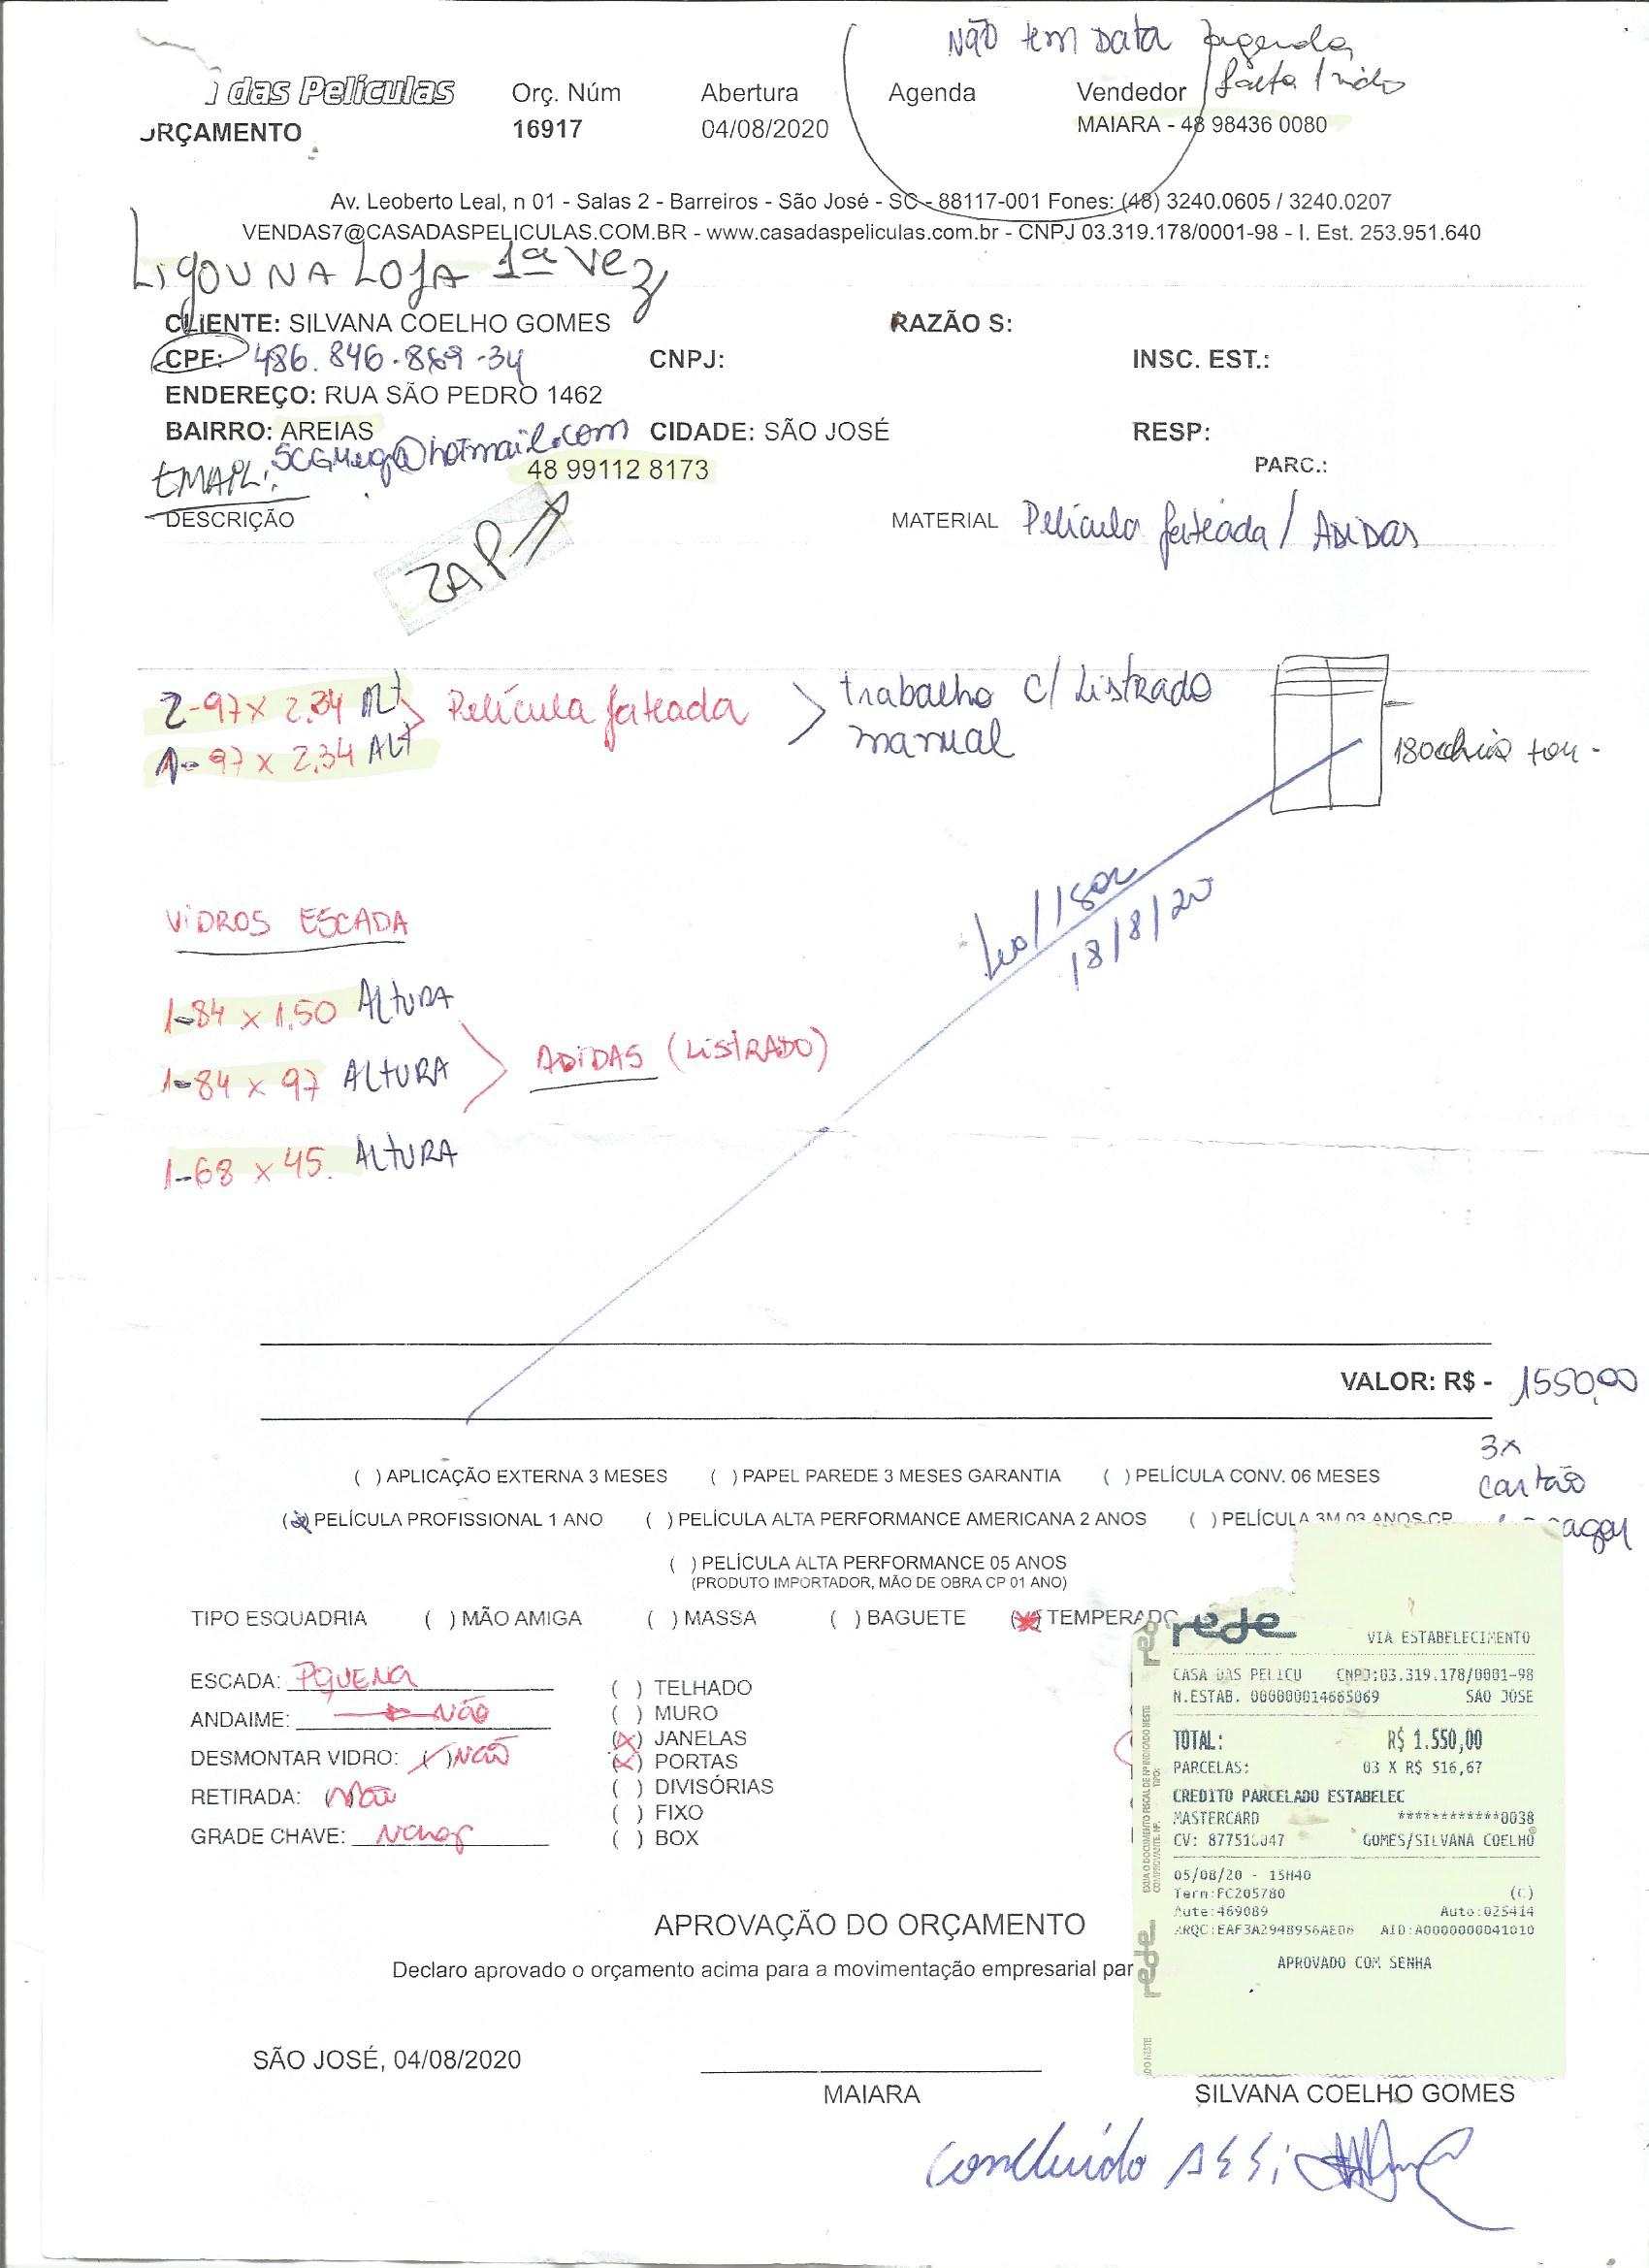 Não tem Data
das Películas
Orç. Núm Abertura Agenda Vendedor
ORÇAMENTO 16917 04/08/2020 MAIARA - 48 98436 0080
Av. Leoberto Leal, n 01 - Salas 2 - Barreiros - São José - SC - 88117-001 Fones: (48) 3240.0605 / 3240.0207
VENDAS7@CASADASPELICULAS.COM.BR - www.casadaspeliculas.com.br - CNPJ 03.319.178/0001-98 - I. Est. 253.951.640
LIGOU NA LOJA 1ª Vez
CLIENTE: SILVANA COELHO GOMES RAZÃO S:
CPF: 486.846.869-34 CNPJ: INSC. EST.:
ENDEREÇO: RUA SÃO PEDRO 1462
BAIRRO: AREIAS CIDADE: SÃO JOSÉ RESP:
EMAIL: @hotmail.com 48 99112 8173 PARC.:
ZAP
DESCRIÇÃO MATERIAL Película fateada / ADIDAS
2-97 x 2.34 ALT Película fateada trabalho c/ Listrado
1-97 x 2.34 ALT manual
18/8/20
VIDROS ESCADA
1-84 x 1.50 ALTURA
1-84 x 97 ALTURA ADIDAS (LISTRADO)
1-68 x 45. ALTURA
VALOR: R$ - 1550,00
3x
cartão
( ) APLICAÇÃO EXTERNA 3 MESES ( ) PAPEL PAREDE 3 MESES GARANTIA ( ) PELÍCULA CONV. 06 MESES
(x) PELÍCULA PROFISSIONAL 1 ANO ( ) PELÍCULA ALTA PERFORMANCE AMERICANA 2 ANOS ( ) PELÍCULA 3M 03 ANOS CP
( ) PELÍCULA ALTA PERFORMANCE 05 ANOS
(PRODUTO IMPORTADOR, MÃO DE OBRA CP 01 ANO)
TIPO ESQUADRIA ( ) MÃO AMIGA ( ) MASSA ( ) BAGUETE (x) TEMPERADO
ESCADA: PQUENA
ANDAIME: NÃO
DESMONTAR VIDRO: ( ) NÃO
RETIRADA: Não
GRADE CHAVE:
( ) TELHADO
( ) MURO
(x) JANELAS
(x) PORTAS
( ) DIVISÓRIAS
( ) FIXO
( ) BOX
rede
VIA ESTABELECIMENTO
CASA DAS PELICU CNPJ:03.319.178/0001-98
N.ESTAB. 000000014665069 SAO JOSE
TOTAL: R$ 1.550,00
PARCELAS: 03 X R$ 516,67
CREDITO PARCELADO ESTABELEC
MASTERCARD ************0038
GOMES/SILVANA COELHO
05/08/20 - 15H40
Term:FC205780 (C)
Aute:469089 Auto:025414
ARQC:EAF3A2948956AED6 AID:A0000000041010
APROVADO COM SENHA
rede
APROVAÇÃO DO ORÇAMENTO
Declaro aprovado o orçamento acima para a movimentação empresarial par
SÃO JOSÉ, 04/08/2020
MAIARA SILVANA COELHO GOMES
Concluído